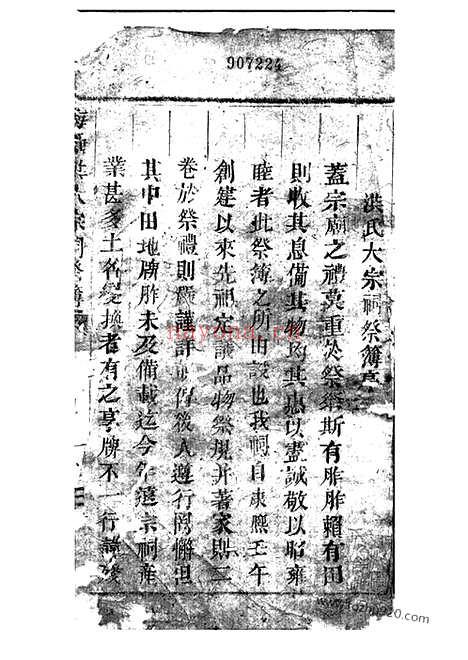 907224
洪氏大宗祠祭簿序
蓋宗廟之禮莫重於祭祭斯有胙胙賴有田
則收其息備其物均其惠以盡誠敬以昭雍
睦者此祭簿之所由設也我祠自康熙壬午
創建以來先祖定議品物祭規并著家則三
卷於祭禮則嚴議詳明俾後人遵行罔懈但
其中田地牌胙未及備載迄今年遠宗祠產
業甚多土名變換者有之享牌不一行
nayona.cn